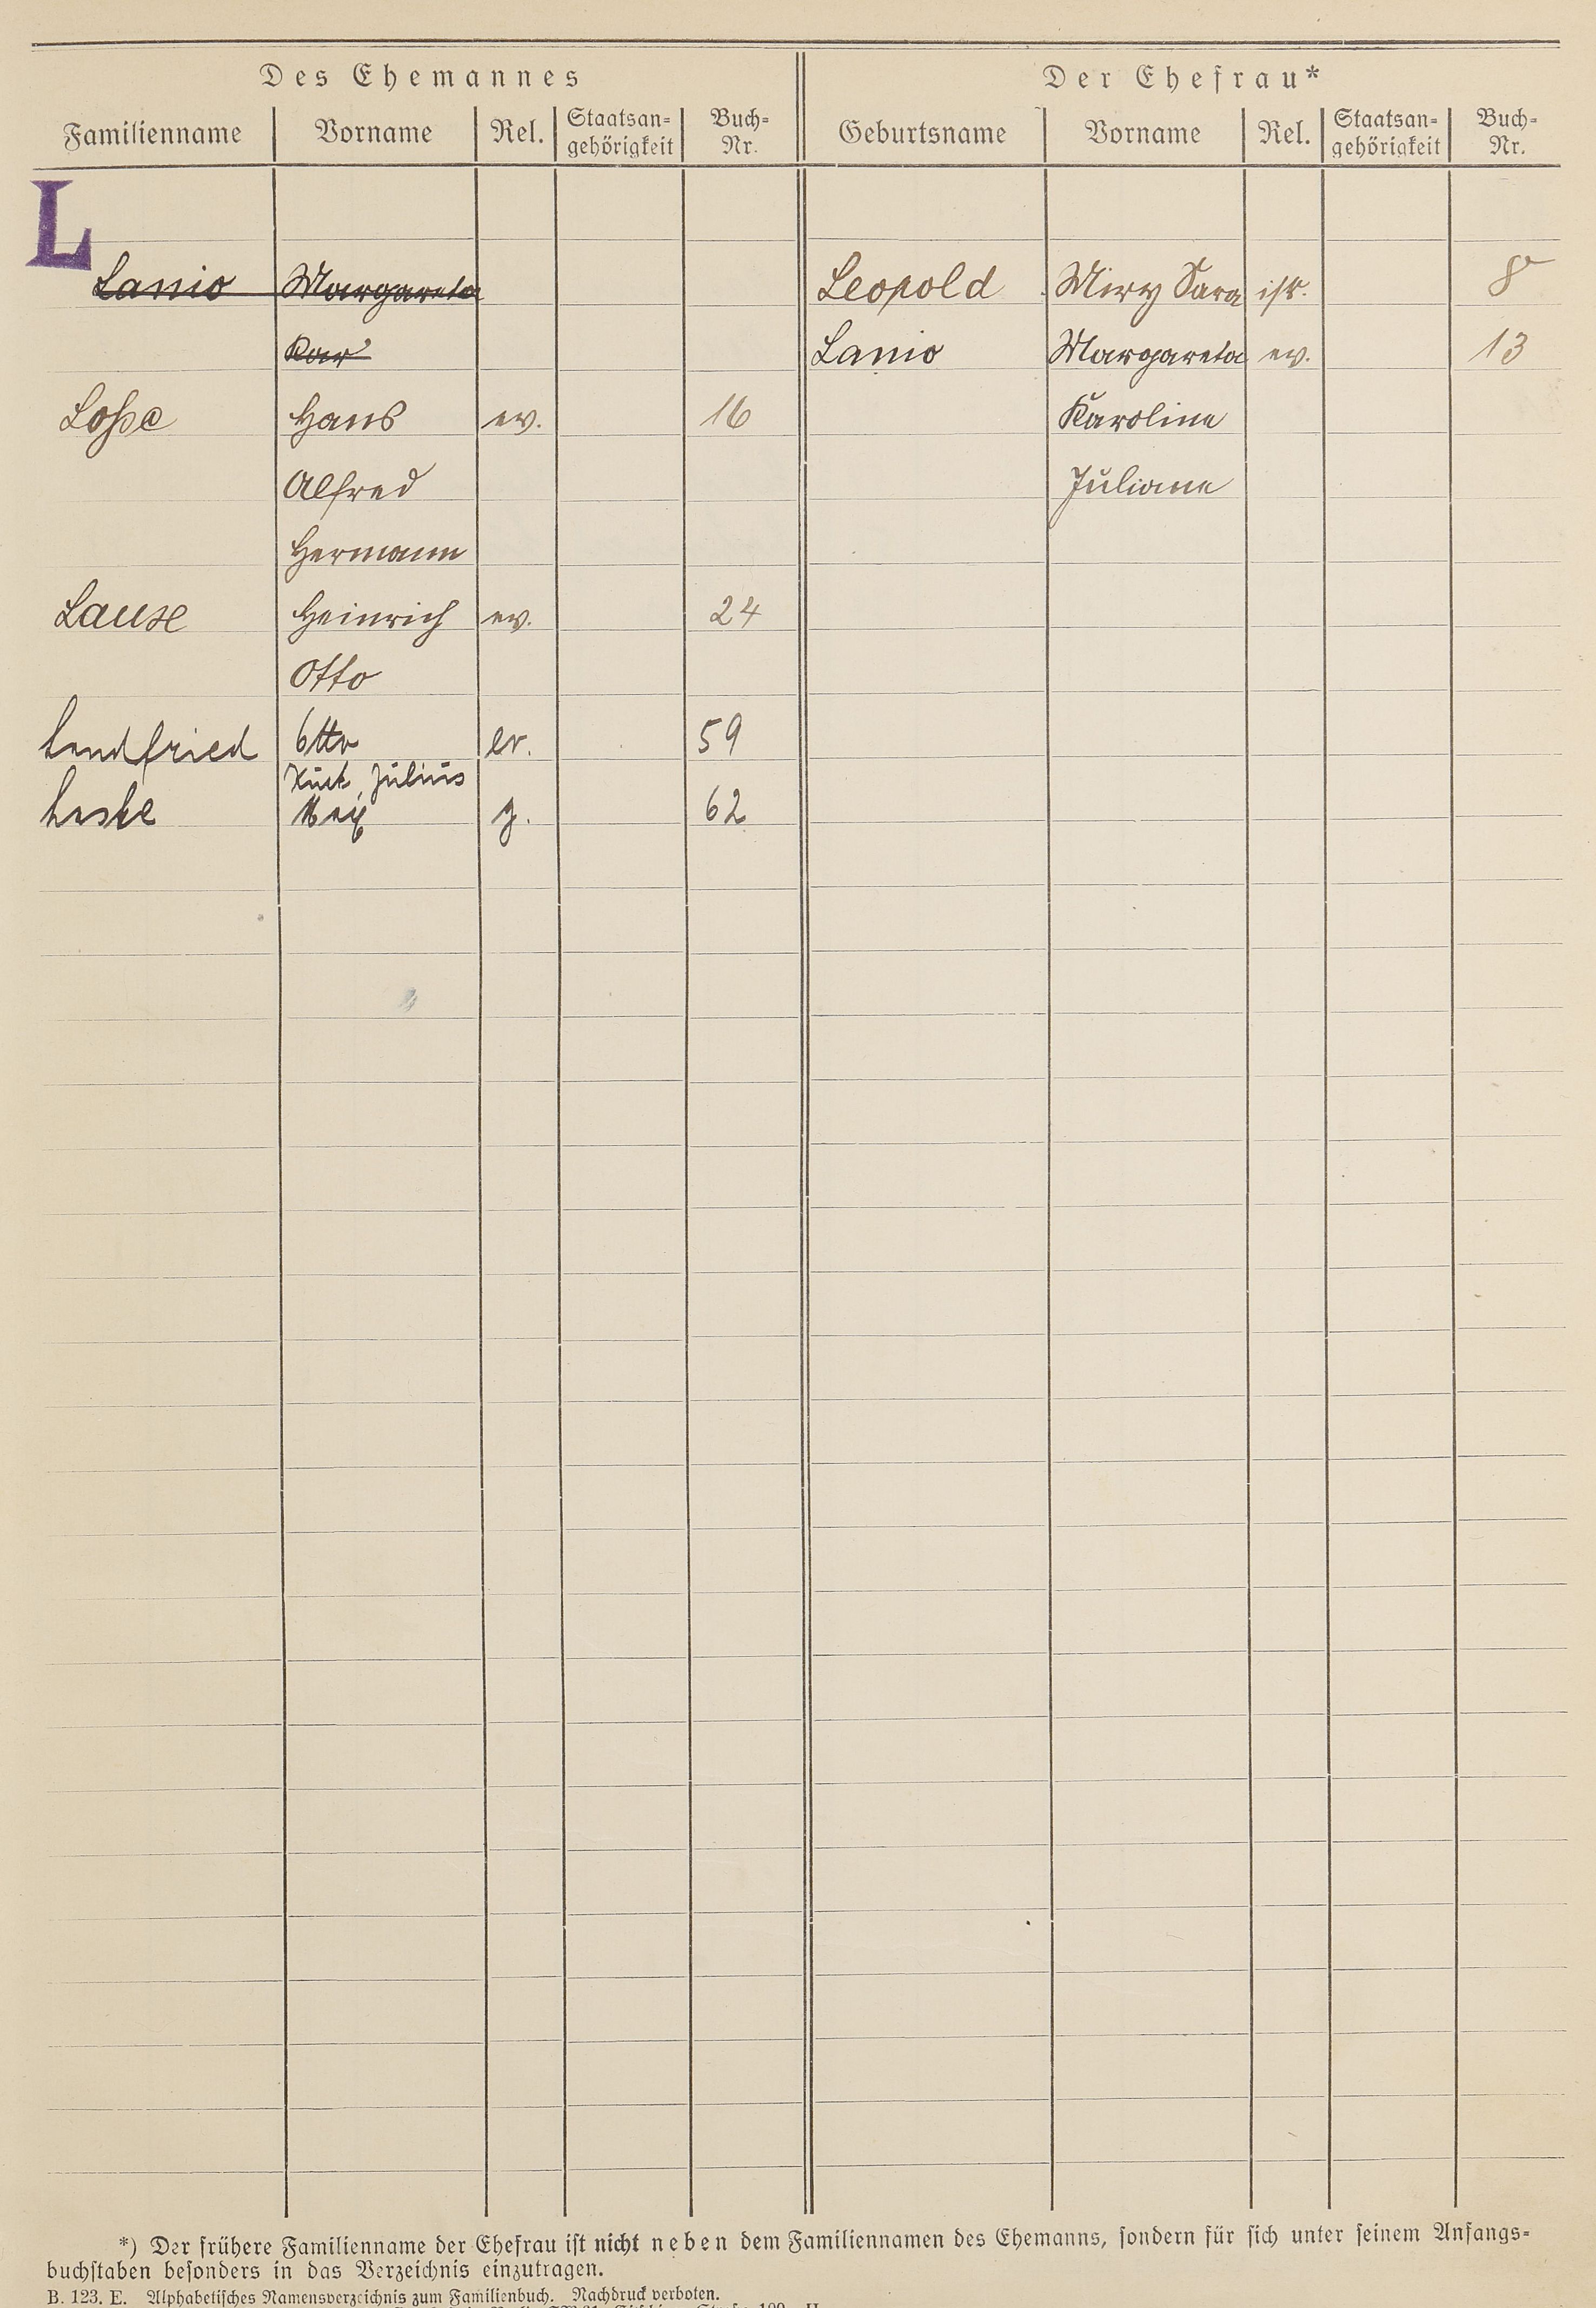 Des Ehemannes Der Ehefrau*
Familienname Vorname Rel. Staatsan-gehörigkeit Buch-Nr. Geburtsname Vorname Rel. Staatsan-gehörigkeit Buch-Nr.
L
Lanio Margareta Leopold Miry Sara isr. 8
Kar Lanio Margareta ev. 13
Hans ev. 16 Karoline
Alfred Juliane
Hermann
Lause Heinrich ev. 24
Otto
Landfried Otto ev. 59
Kurt, Julius
Laske Max g. 62
*) Der frühere Familienname der Ehefrau ist nicht neben dem Familiennamen des Ehemanns, sondern für sich unter seinem Anfangs-
buchstaben besonders in das Verzeichnis einzutragen.
B. 123. E. Alphabetisches Namensverzeichnis zum Familienbuch. Nachdruck verboten.